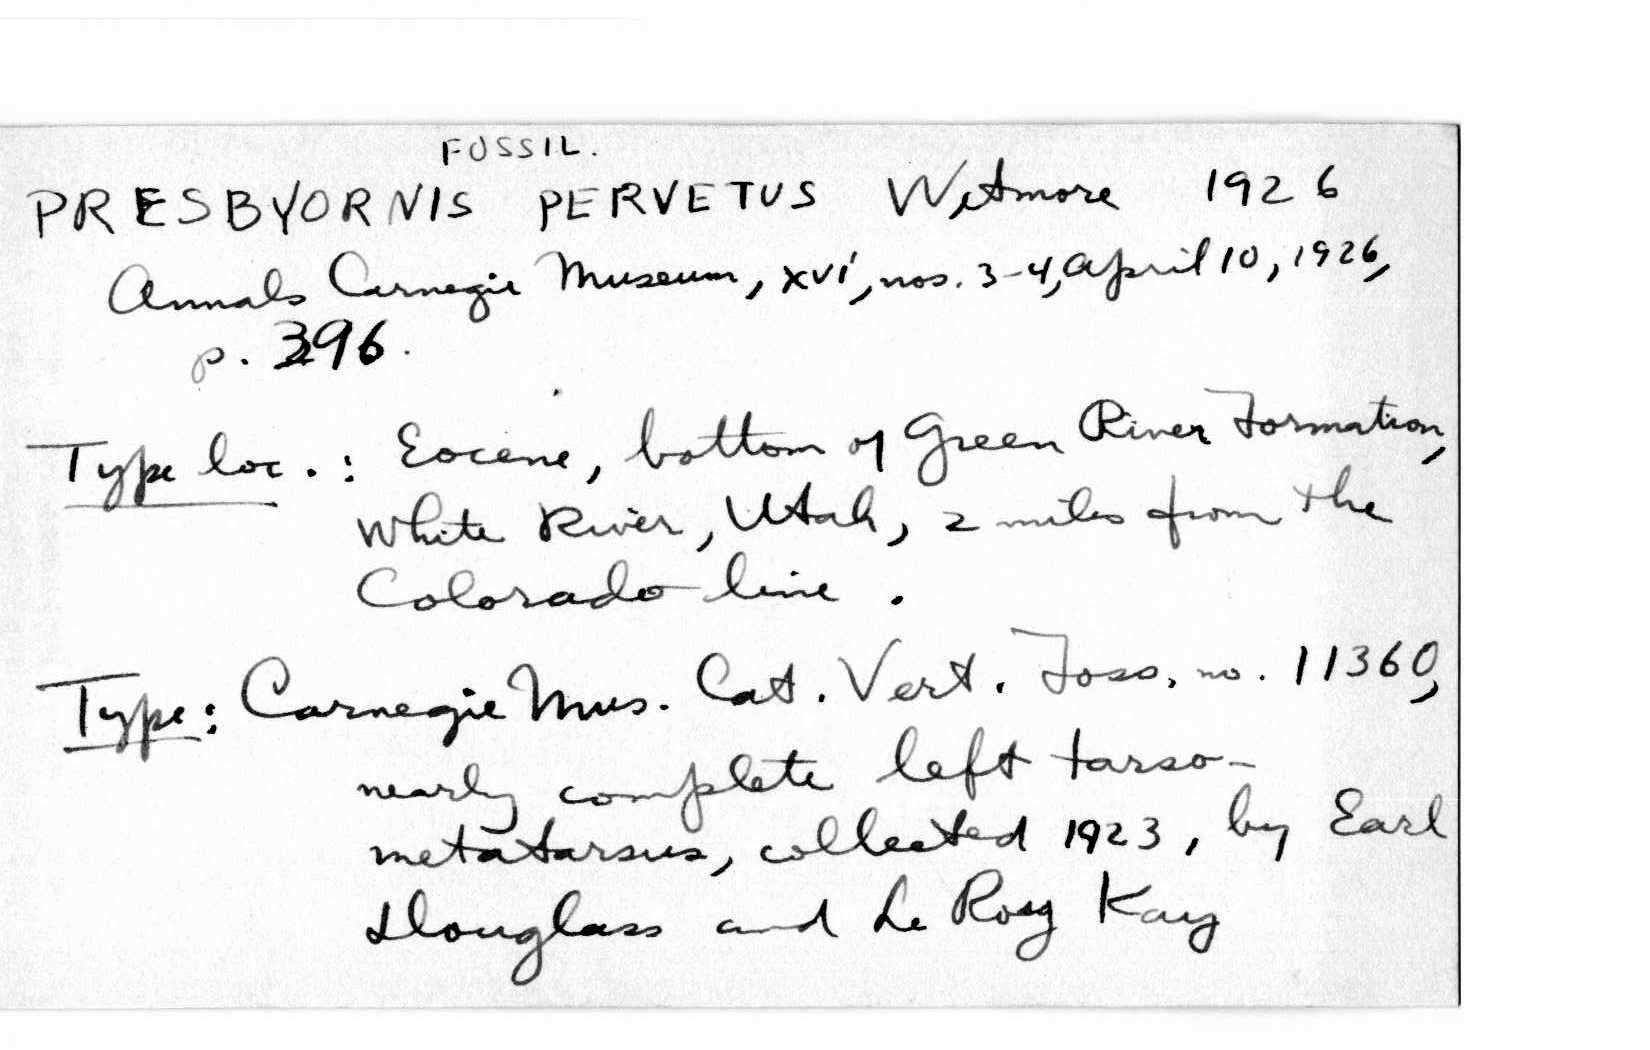 FOSSIL.
PRESBYORNIS PERVETUS Wetmore 1926
Annals Carnegie Museum, XVI, nos. 3-4, April 10, 1926,
p. 396.
Type loc.: Eocene, bottom of Green River Formation,
White River, Utah, 2 miles from the
Colorado line.
Type: Carnegie Mus. Cat. Vert. Foss. no. 11360,
nearly complete left tarso-
metatarsus, collected 1923, by Earl
Douglass and Le Roy Kay